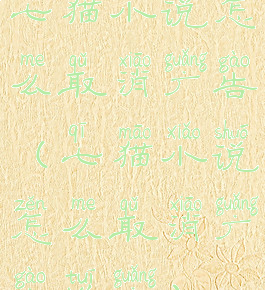 七猫小说怎
me qǔ xiāo guǎng gào
么取消广告
qī māo xiǎo shuō
(七猫小说
zěn me qǔ xiāo guǎng
怎么取消广
gào tuī guǎng